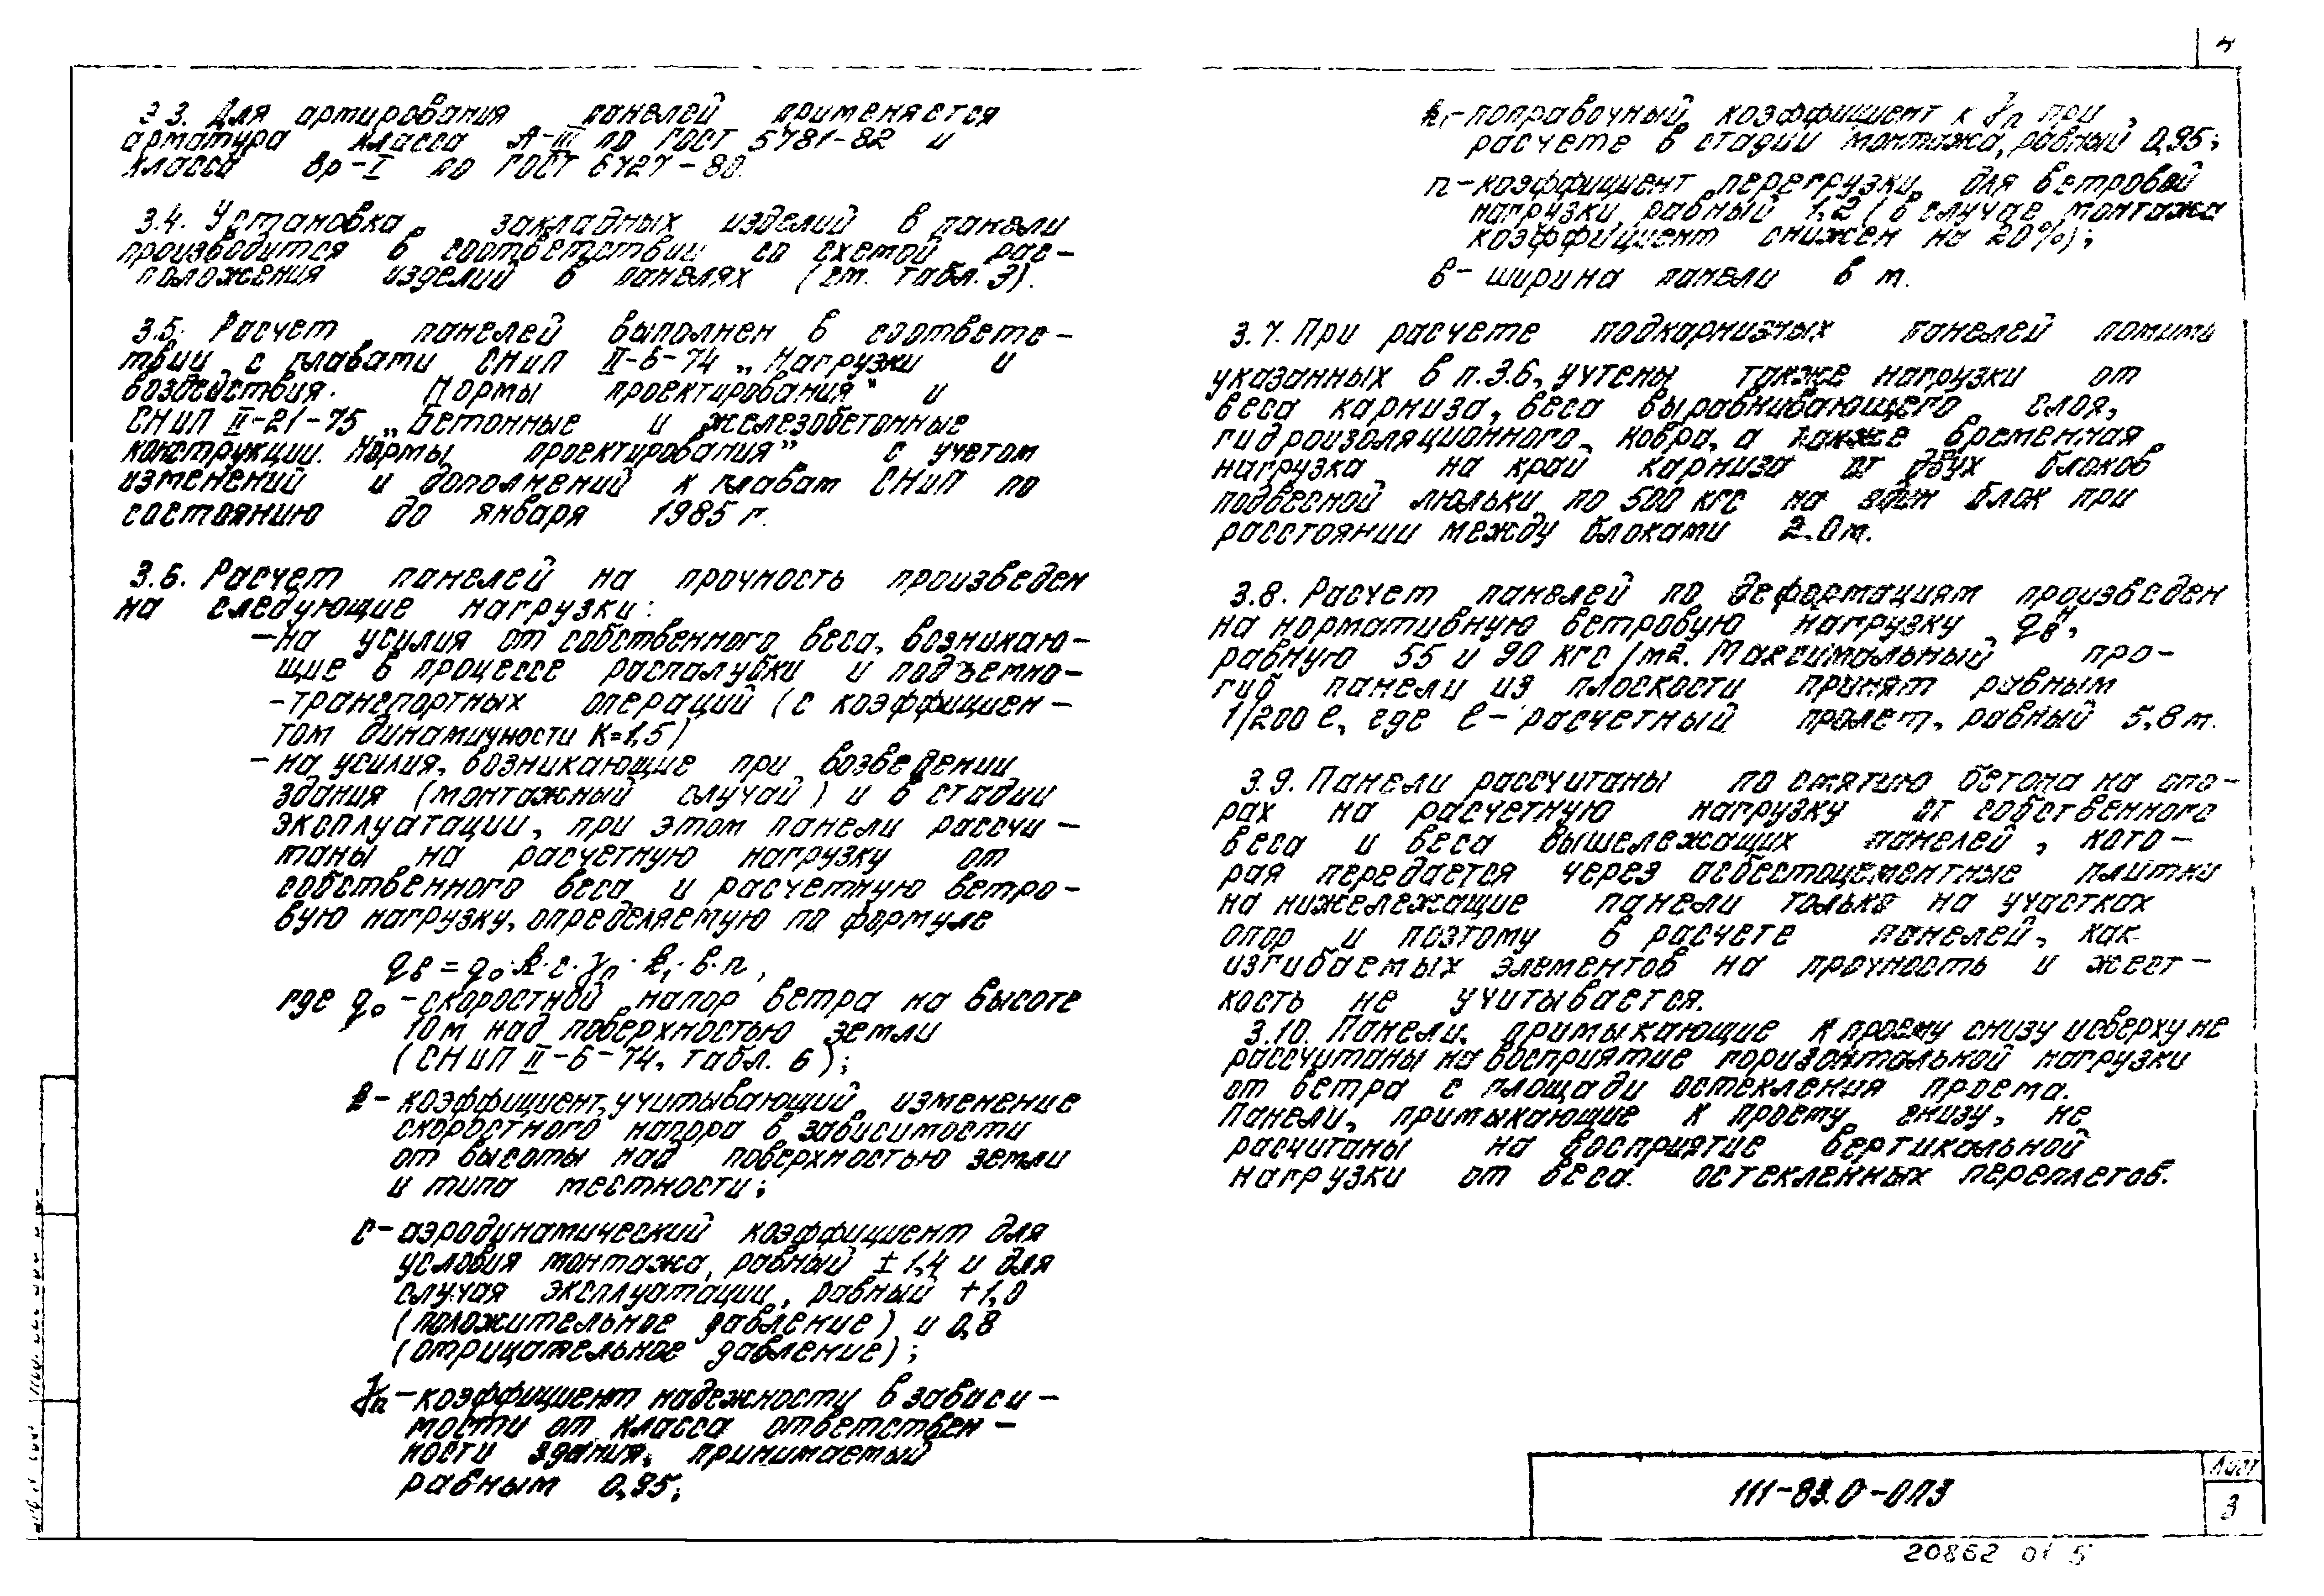 4
3.3. Для армирования панелей применяется
арматура класса А-III по ГОСТ 5781-82 и
класса Вр-I по ГОСТ 6727-80.
3.4. Установка закладных изделий в панели
производится в соответствии со схемой рас-
положения изделий в панелях (см. табл. 3).
3.5. Расчет панелей выполнен в соответс-
твии с главами СНиП II-6-74 „Нагрузки и
воздействия. Нормы проектирования" и
СНиП II-21-75 „Бетонные и железобетонные
конструкции. Нормы проектирования" с учетом
изменений и дополнений к главам СНиП по
состоянию до января 1985 г.
3.6. Расчет панелей на прочность произведен
на следующие нагрузки:
-на усилия от собственного веса, возникаю-
щие в процессе распалубки и подъемно-
-транспортных операций (с коэффициен-
том динамичности К=1,5)
-на усилия, возникающие при возведении
здания (монтажный случай) и в стадии
эксплуатации, при этом панели рассчи-
таны на расчетную нагрузку от
собственного веса и расчетную ветро-
вую нагрузку, определяемую по формуле
qв = q₀·k·c·γn·k₁·в·n,
где q₀ - скоростной напор ветра на высоте
10 м над поверхностью земли
(СНиП II-6-74, табл. 6);
k- коэффициент, учитывающий изменение
скоростного напора в зависимости
от высоты над поверхностью земли
и типа местности;
c- аэродинамический коэффициент для
условия монтажа, равный ± 1,4 и для
случая эксплуатации, равный +1,0
(положительное давление) и 0,8
(отрицательное давление);
γn - коэффициент надежности в зависи-
мости от класса ответствен-
ности здания, принимаемый
равным 0,95;
k₁-поправочный коэффициент к γn при
расчете в стадии монтажа, равный 0,95;
n-коэффициент перегрузки для ветровой
нагрузки равный 1,2 (в случае монтажа
коэффициент снижен на 20%);
в- ширина панели в м.
3.7. При расчете подкарнизных панелей помимо
указанных в п.3.6, учтены также нагрузки от
веса карниза, веса выравнивающего слоя,
гидроизоляционного ковра, а также временная
нагрузка на край карниза от двух блоков
подвесной люльки по 500 кгс на один блок при
расстоянии между блоками 2.0м.
3.8. Расчет панелей по деформациям произведен
на нормативную ветровую нагрузку qвн,
равную 55 и 90 кгс/м2. Максимальный про-
гиб панели из плоскости принят равным
1/200 ℓ, где ℓ- расчетный пролет, равный 5,8 м.
3.9. Панели рассчитаны по смятию бетона на опо-
рах на расчетную нагрузку от собственного
веса и веса вышележащих панелей, кото-
рая передается через асбестоцементные плитки
на нижележащие панели только на участках
опор и поэтому в расчете панелей, как
изгибаемых элементов на прочность и жест-
кость не учитывается.
3.10. Панели, примыкающие к проему снизу и сверху не
рассчитаны на восприятие горизонтальной нагрузки
от ветра с площади остекления проема.
Панели, примыкающие к проему снизу, не
расчитаны на восприятие вертикальной
нагрузки от веса остекленных переплетов.
111-83.0-0ПЗ
Лист
3
20862 01 5